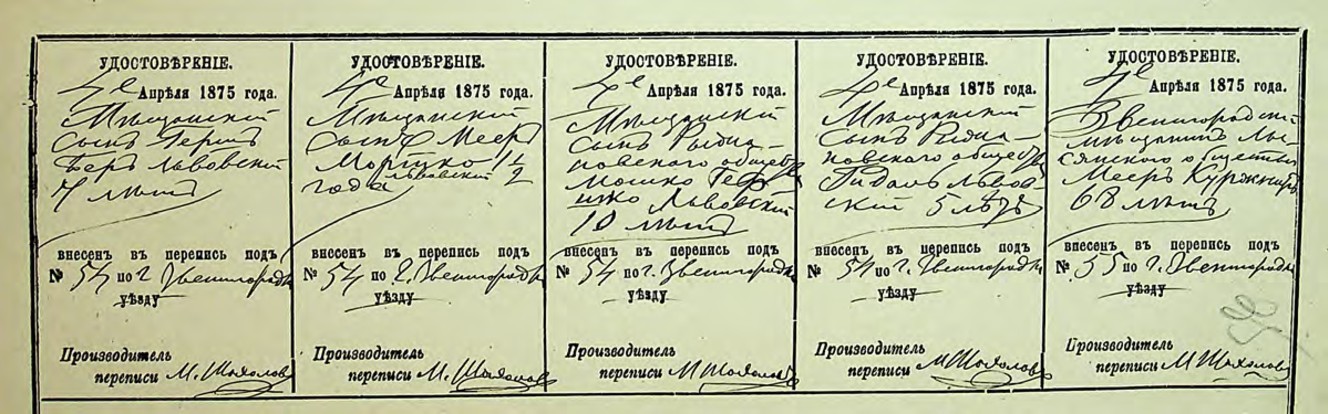 УДОСТОВѢРЕНІЕ.
4го Апрѣля 1875 года.
Мѣщанскій
сынъ Герш
Беръ Львовскій
7 лѣтъ
внесенъ въ перепись подъ
№ 54 по г. Звенигородкѣ
уѣзду
Производитель
переписи М.
УДОСТОВѢРЕНІЕ.
Апрѣля 1875 года.
Мѣщанскій
сынъ Меер
Мортко 1 1/2
Львовскій
года
внесенъ въ перепись подъ
№ 54 по г. Звенигородкѣ
уѣзду
Производитель
переписи М.
УДОСТОВѢРЕНІЕ.
Апрѣля 1875 года.
Мѣщанскій
сынъ
новскаго
Мошко Гершко Львовскій
10 лѣтъ
внесенъ въ перепись подъ
№ 54 по г. Звенигородкѣ
уѣзду
Производитель
переписи М
УДОСТОВѢРЕНІЕ.
Апрѣля 1875 года.
Мѣщанскій
сынъ
новскаго
Гидаль Львов-
скій 5 лѣтъ
внесенъ въ перепись подъ
№ 54 по г. Звенигородкѣ
уѣзду
Производитель
переписи М
УДОСТОВѢРЕНІЕ.
Апрѣля 1875 года.
Звенигородскій
мѣщанинъ Лы-
сянскаго общества
Мееръ Куржнеръ
68 лѣтъ
внесенъ въ перепись подъ
№ 55 по г. Звенигородкѣ
уѣзду
Производитель
переписи М